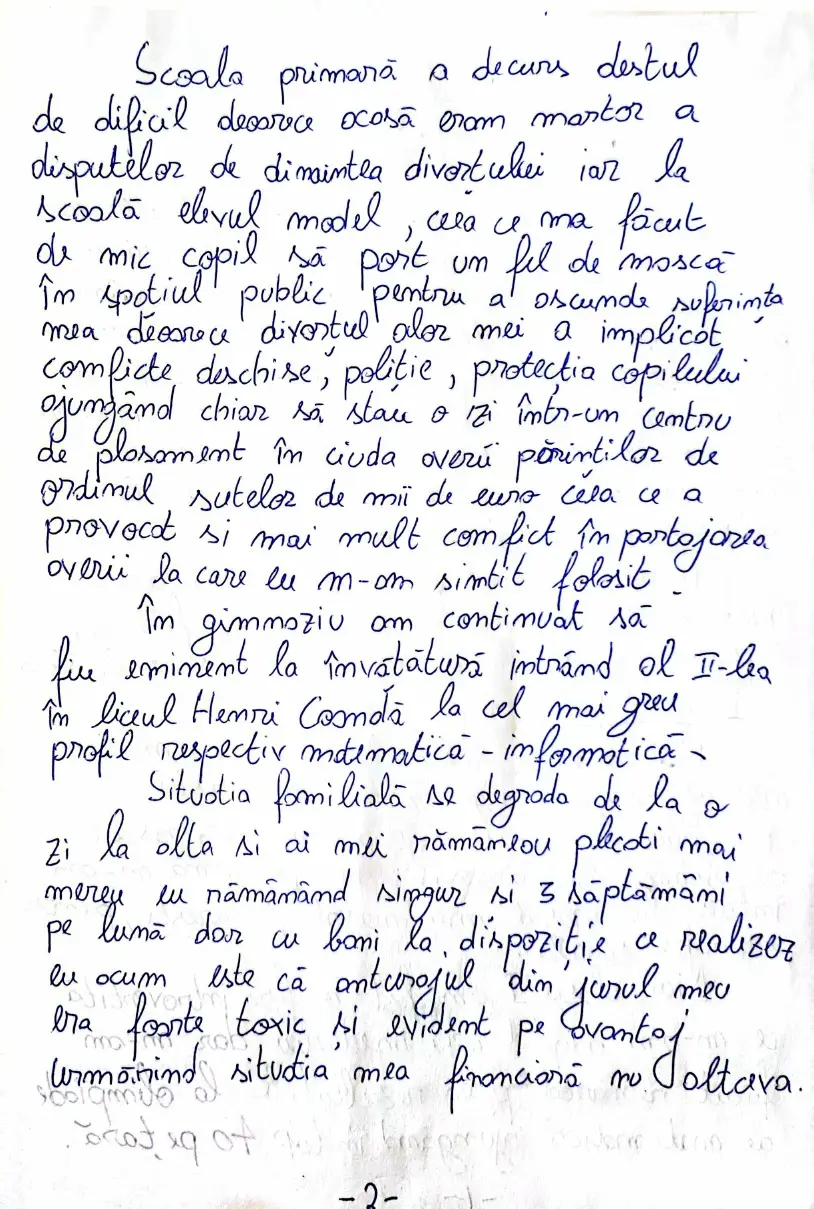 Scoala primară a decurs destul
de dificil deoarece acasă eram martor a
disputelor de dinaintea divortului iar la
scoală elevul model, ceea ce ma făcut
de mic copil să port un fel de mască
în spațiul public pentru a ascunde suferința
mea deoarece divorțul alor mei a implicat
conficte deschise, poliție, protecția copilului
ajungând chiar să stau o zi într-un centru
de plasament în ciuda averii părintilor de
ordinul sutelor de mii de euro ceea ce a
provocat si mai mult confict în partajarea
averii la care eu m-am simtit folosit.
În gimnaziu am continuat să
fiu eminent la învătătură intrând al II-lea
în liceul Henri Coandă la cel mai greu
profil respectiv matematică - informatică.
Situatia familială se degrada de la o
zi la alta si ai mei rămâneau plecati mai
mereu eu rămânând singur si 3 săptămâni
pe lună dar cu bani la dispoziție ce realizez
eu acum este că anturajul din jurul meu
era foarte toxic si evident pe avantaj
urmărind situatia mea financiară nu altceva.
-2-